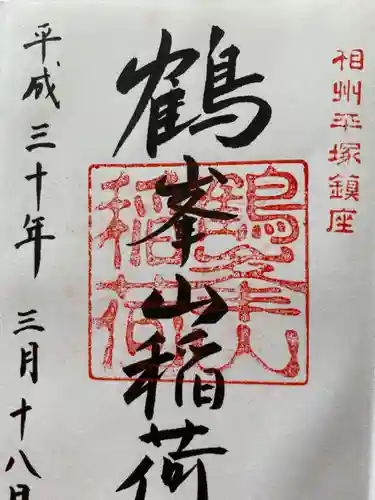 相州平塚鎮座
鶴峯山稲荷
鶴峯山
稲荷
平成三十年 三月十八日